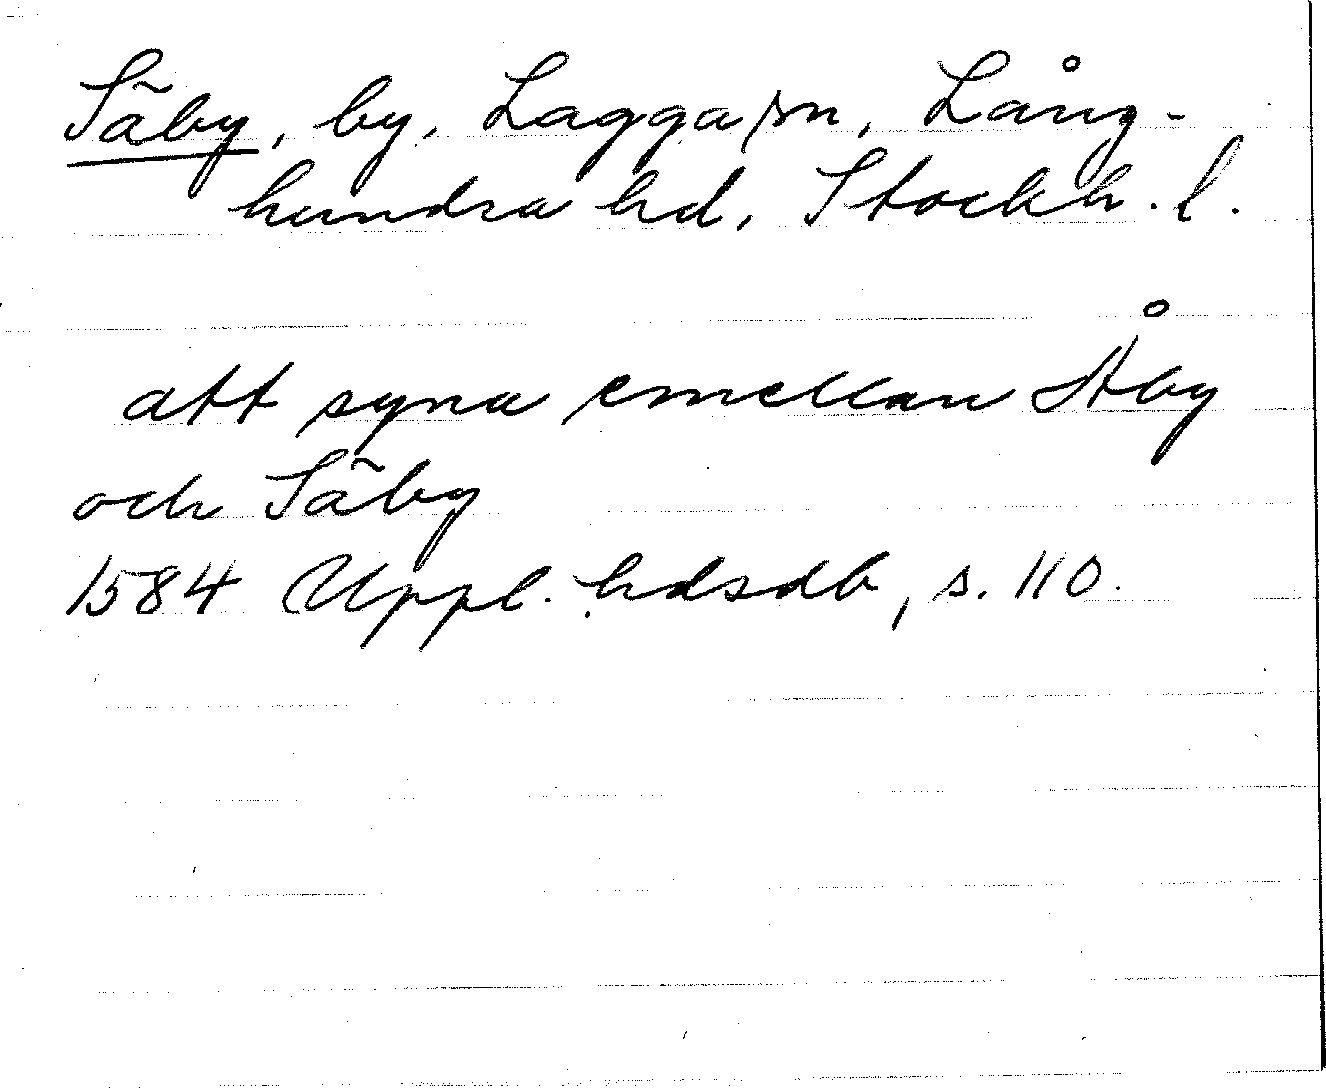 Säby, by, Lagga sn, Lång-
hundra hd, Stockh. l.
att syna emellan Åby
och Säby
1584 Uppl. hdsdb, s. 110.